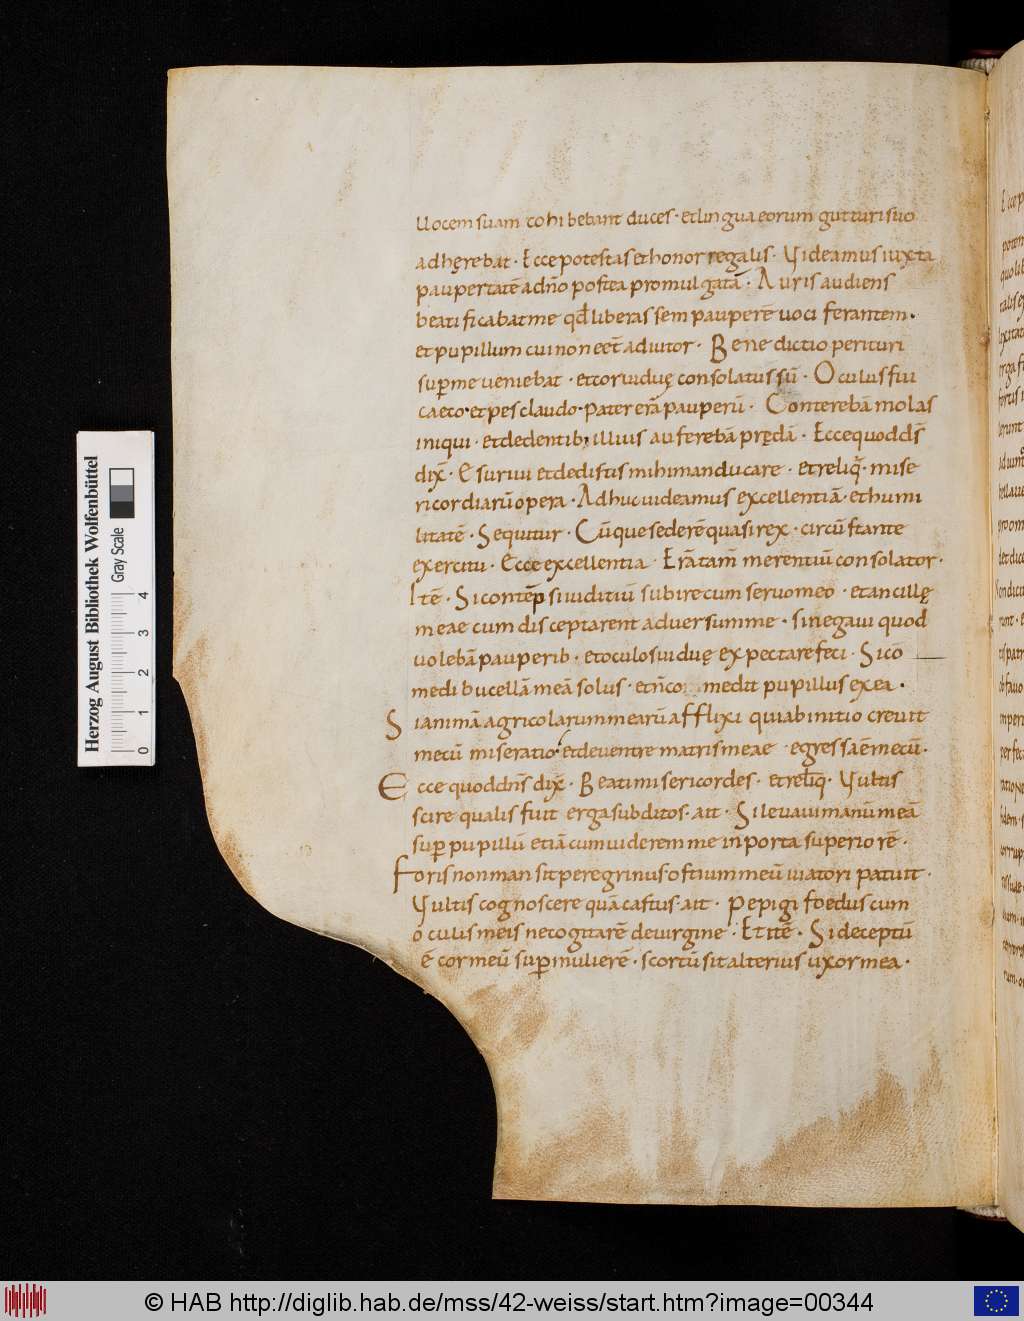 Uocem suam cohibebant duces · et lingua eorum gutturi suo
adhęrebat · Ecce potestas et honor regalis · Uideamus iuxta
paupertatē ad nō postea promulgatā · Auris audiens
beatificabat me qđ liberassem pauperē uociferantem ·
et pupillum cui non eēt adiutor · Benedictio perituri
sup me ueniebat · et cor uiduę consolatus sū · Oculus fui
caeco · et pes claudo · Pater erā pauperū · Conterebā molas
iniqui · et de dentib; illius auferebā prędā · Ecce quod dn̄s
dix̄ · Esuriui et dedistis mihi manducare · et reliq̄ · mise
ricordiarū opera · Adhuc uideamus excellentiā · et humi
litatē · Sequitur · Cūque sederē quasi rex · circūstante
exercitu · Ecce excellentia · Erā tam̄ merentiū consolator ·
Itē · Si contēpsi iuditiū subire cum seruo meo · et ancillę
meae cum disceptarent aduersum me · si negaui quod
uolebā pauperib · et oculos uiduę expectare feci · Si cō
medi bucellā meā solus · et n̄ comedit pupillus ex ea ·
Si animā agricolarum mearū afflixi quia b initio creuit
mecū miseratio · et de uentre matris meae egressa ē mecū ·
Ecce quod dn̄s dix̄ · Beati misericordes · et reliq̄ · Uultis
scire qualis fuit erga subditos · ait · Si leuaui manū meā
sup pupillū etiā cum uiderem me in porta superiorē ·
Foris non mansit peregrinus · ostium meū uiatori patuit ·
Uultis cognoscere quā castus ait · Pepigi foedus cum
oculis meis ne cogitarē de uirgine · Et itē · Si deceptū
ē cor meū sup mulierē · scortū sit alterius uxor mea ·
Herzog August Bibliothek Wolfenbüttel
Gray Scale
0 1 2 3 4
© HAB http://diglib.hab.de/mss/42-weiss/start.htm?image=00344